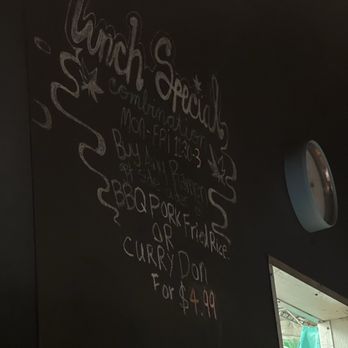 Lunch Special
combination
Mon-Fri 11:30-3
Buy Any Ramen
BBQ Pork Fried Rice
OR
Curry Don
For $4.99